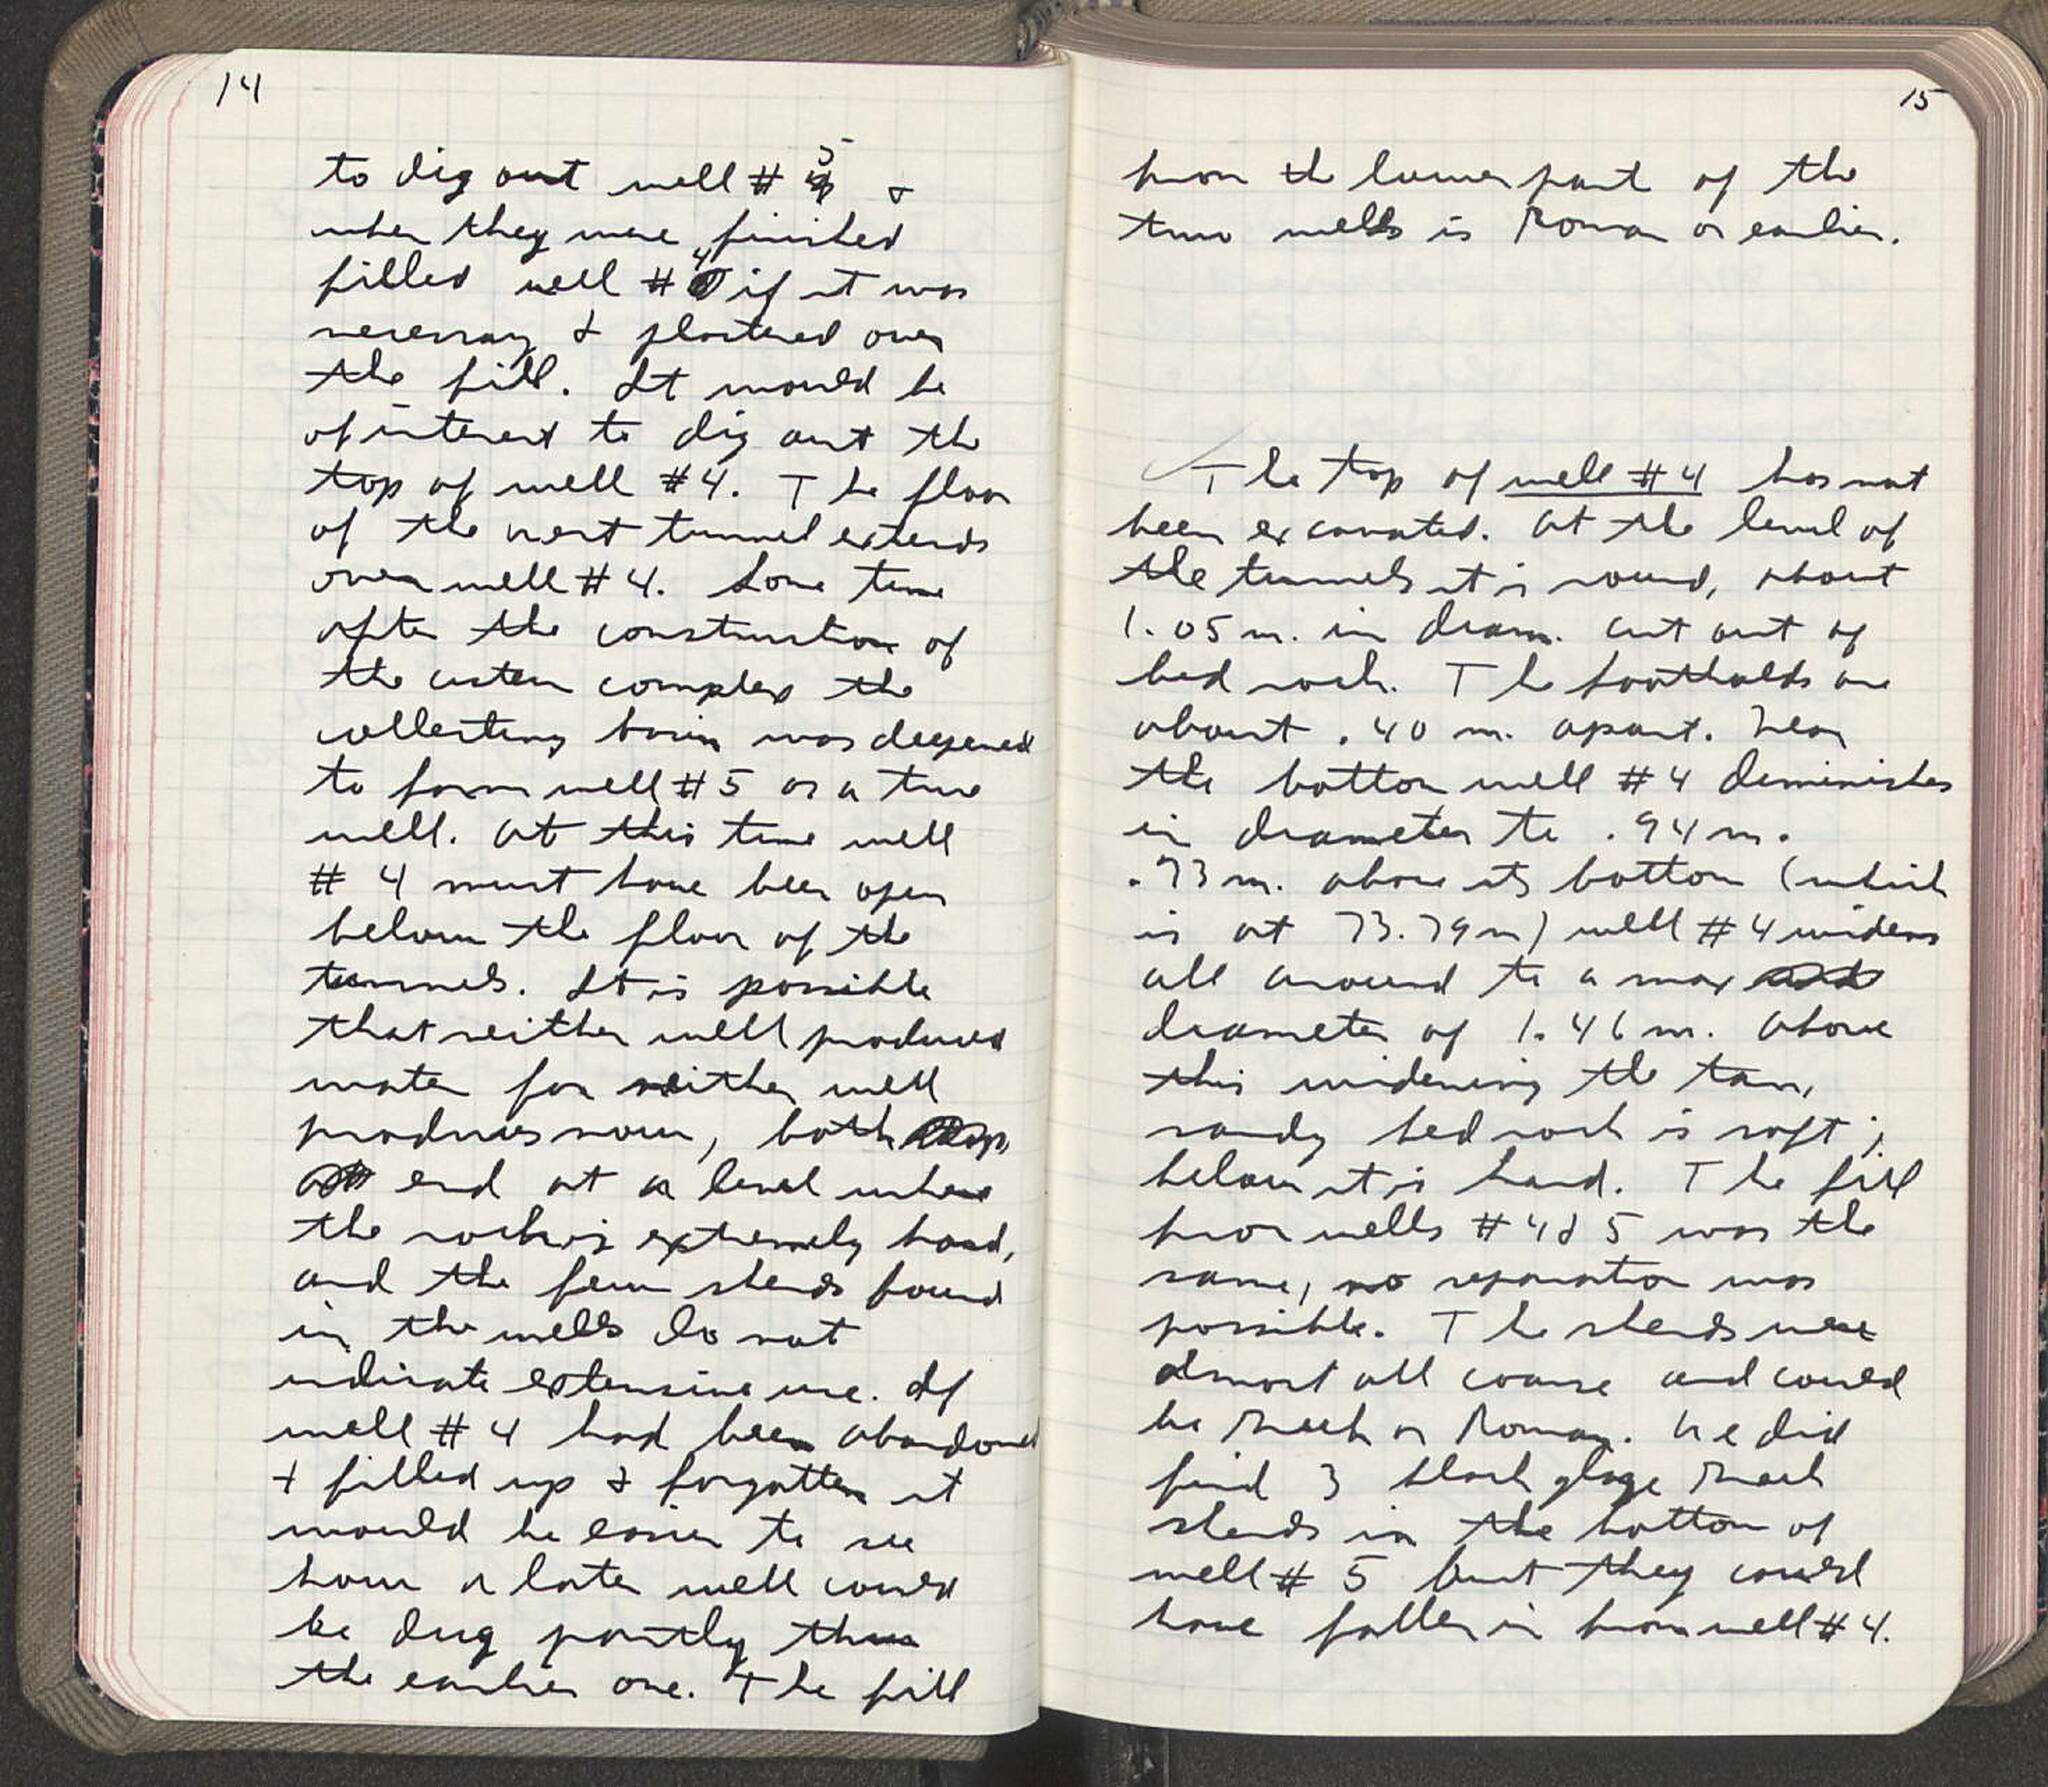 14
to dig out well # 5 &
when they were finished
filled well # 4 if it was
necessary & plastered over
the fill. It would be
of interest to dig out the
top of well #4. The floor
of the west tunnel extends
over well #4. Some time
after the construction of
the cistern complex the
collecting basin was deepened
to form well #5 as a true
well. At this time well
# 4 must have been open
below the floor of the
tunnels. It is possible
that neither well produced
water for neither well
produces now, both
end at a level where
the rock is extremely hard,
and the few sherds found
in the wells do not
indicate extensive use. If
well # 4 had been abandoned
& filled up & forgotten it
would be easier to see
how a later well could
be dug partly thru
the earlier one. The fill
15
from the lower part of the
two wells is Roman or earlier.
The top of well #4 has not
been excavated. At the level of
the tunnels it is round, about
1.05 m. in diam. cut out of
bed rock. The footholds are
about .40 m. apart. Near
the bottom well #4 diminishes
in diameter to .94 m.
.73 m. above its bottom (which
is at 73.79 m) well #4 widens
all around to a max
diameter of 1.46 m. Above
this widening the tan,
sandy bed rock is soft;
below it is hard. The fill
from wells #4 & 5 was the
same, no separation was
possible. The sherds were
almost all coarse and could
be Greek or Roman. We did
find 3 black glaze Greek
sherds in the bottom of
well # 5 but they could
have fallen in from well #4.